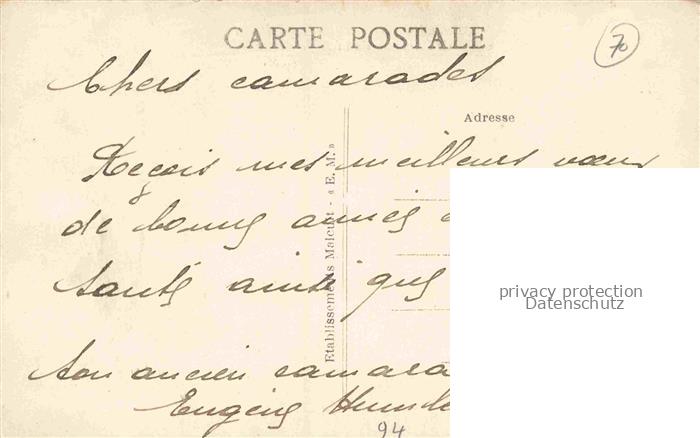 CARTE POSTALE
70
Chers camarades
Adresse
Reçois mes meilleurs vœux
de bonne année
Santé ainsi que
ton ancien camara
Eugène
Etablissements Malcuit - « E. M. »
privacy protection
Datenschutz
94